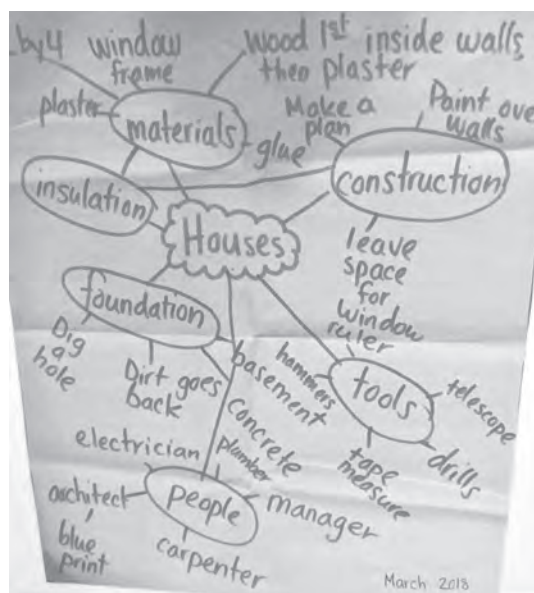 by 4
window
frame
wood 1st inside walls,
then plaster
plaster
materials
glue
Make a
plan
Paint over
walls
insulation
construction
Houses
leave
space
for
window
foundation
Dig
a
hole
Dirt goes
back
basement
concrete
ruler
hammers
tools
telescope
drills
tape
measure
electrician
plumber
architect
people
manager
blue
print
carpenter
March 2018